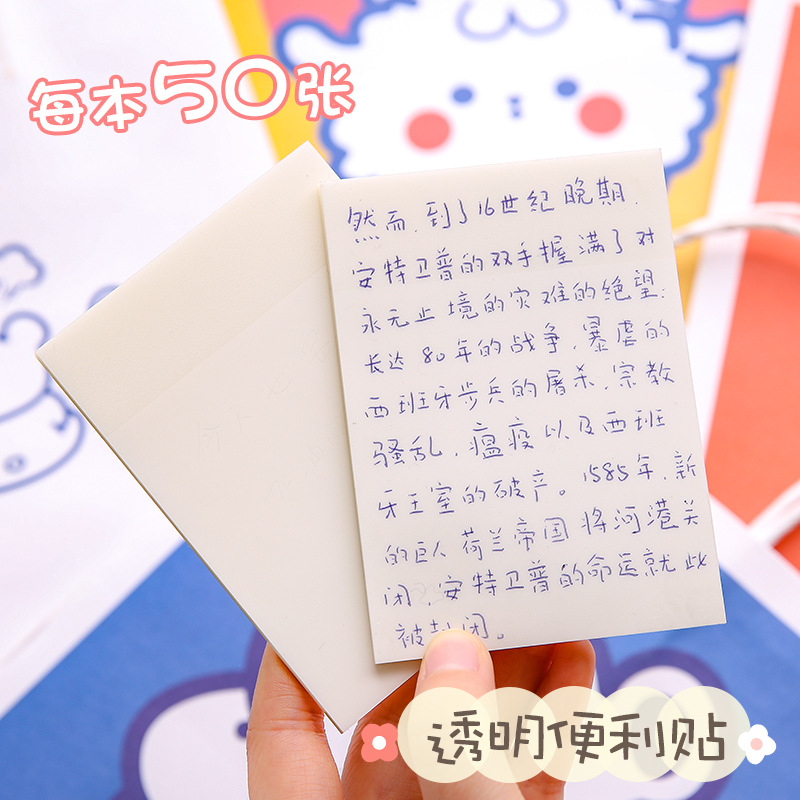 每本50张
然而,到了16世纪晚期,
安特卫普的双手握满了对
永无止境的灾难的绝望:
长达80年的战争,暴虐的
西班牙步兵的屠杀,宗教
骚乱,瘟疫以及西班
牙王室的破产。1585年,新
的巨人荷兰帝国将河港关
闭,安特卫普的命运就此
被封闭。
透明便利贴